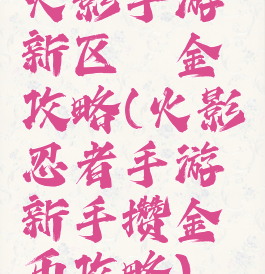 火影手游
新区 金
攻略(火影
忍者手游
新手攒金
币攻略)